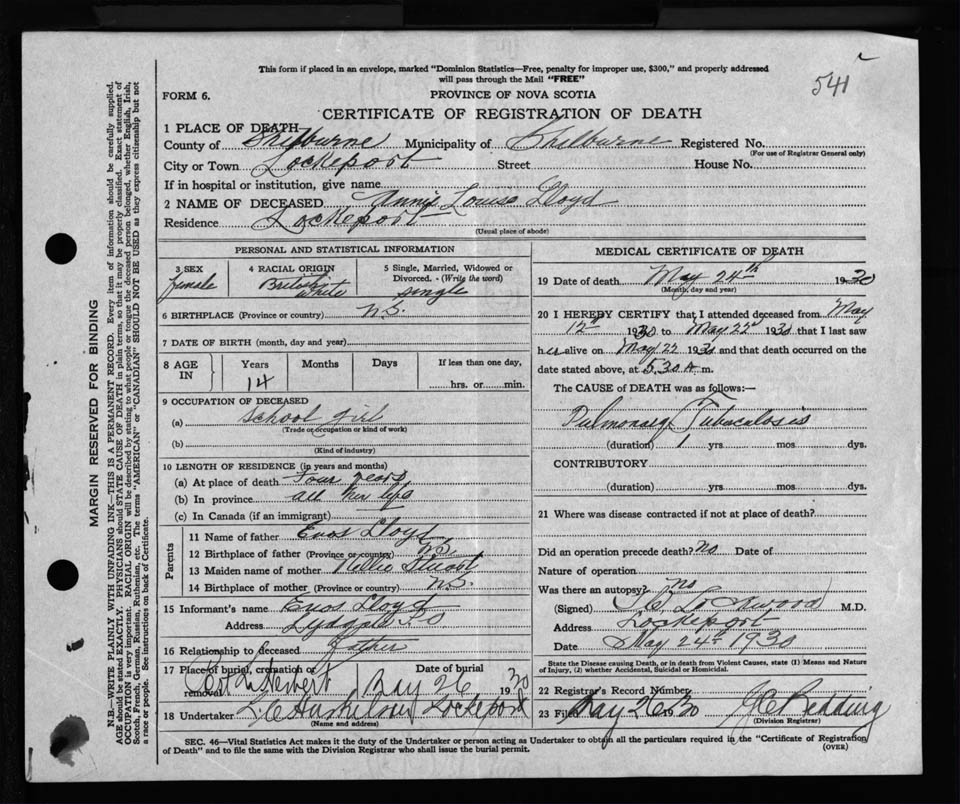 541
This form if placed in an envelope, marked "Dominion Statistics—Free, penalty for improper use, $300," and properly addressed
will pass through the Mail "FREE"
FORM 6.
PROVINCE OF NOVA SCOTIA
CERTIFICATE OF REGISTRATION OF DEATH
1 PLACE OF DEATH—
County of Shelburne Municipality of Shelburne Registered No.
(For use of Registrar General only)
City or Town Lockeport Street House No.
If in hospital or institution, give name
2 NAME OF DECEASED Annie Louise Lloyd
Residence Lockeport
(Usual place of abode)
PERSONAL AND STATISTICAL INFORMATION
3 SEX
female
4 RACIAL ORIGIN
British White
5 Single, Married, Widowed or
Divorced. - (Write the word)
single
6 BIRTHPLACE (Province or country) N.S.
7 DATE OF BIRTH (month, day and year)
8 AGE IN
Years Months Days If less than one day,
14 hrs. or min.
9 OCCUPATION OF DECEASED
(a) School girl
(Trade or occupation or kind of work)
(b)
(Kind of industry)
10 LENGTH OF RESIDENCE (in years and months)
(a) At place of death Four years
(b) In province all her life
(c) In Canada (if an immigrant)
Parents
11 Name of father Enos Lloyd
12 Birthplace of father (Province or country) N.S.
13 Maiden name of mother Nellie Stuart
14 Birthplace of mother (Province or country) N.S.
15 Informant's name Enos Lloyd
Address
16 Relationship to deceased father
17 Place of burial, cremation or removal Date of burial
Port L Herbert May 26 1930
18 Undertaker Lockeport
(Name and address)
MEDICAL CERTIFICATE OF DEATH
19 Date of death May 24th 1930
(Month, day and year)
20 I HEREBY CERTIFY that I attended deceased from May
12th 1930 to May 22d 1930 that I last saw
her alive on May 22 1930 and that death occurred on the
date stated above, at 5.30 A m.
The CAUSE of DEATH was as follows:—
Pulmonary Tuberculosis
(duration) 1 yrs. mos. dys.
CONTRIBUTORY
(duration) yrs. mos. dys.
21 Where was disease contracted if not at place of death?
Did an operation precede death? no Date of
Nature of operation
Was there an autopsy? no
(Signed) Lockwood M.D.
Address Lockeport
Date May 24th 1930
State the Disease causing Death, or in death from Violent Causes, state (1) Means and Nature
of Injury, (2) whether Accidental, Suicidal or Homicidal.
22 Registrar's Record Number
23 Filed May 26 1930 J C Redding
(Division Registrar)
SEC. 46—Vital Statistics Act makes it the duty of the Undertaker or person acting as Undertaker to obtain all the particulars required in the "Certificate of Registration
of Death" and to file the same with the Division Registrar who shall issue the burial permit.
(OVER)
MARGIN RESERVED FOR BINDING
N.B.—WRITE PLAINLY WITH UNFADING INK—THIS IS A PERMANENT RECORD. Every item of information should be carefully supplied.
AGE should be stated EXACTLY. PHYSICIANS should STATE CAUSE OF DEATH in plain terms, so that it may be properly classified. Exact statement of
OCCUPATION is very important. RACIAL ORIGIN will be described by stating to what people or tongue the deceased person belonged, whether English, Irish,
Scotch, French, German, Russian, Ruthenian, etc. The terms "AMERICAN" or "CANADIAN" SHOULD NOT BE USED as they express citizenship but not
a race or people. See instructions on back of Certificate.